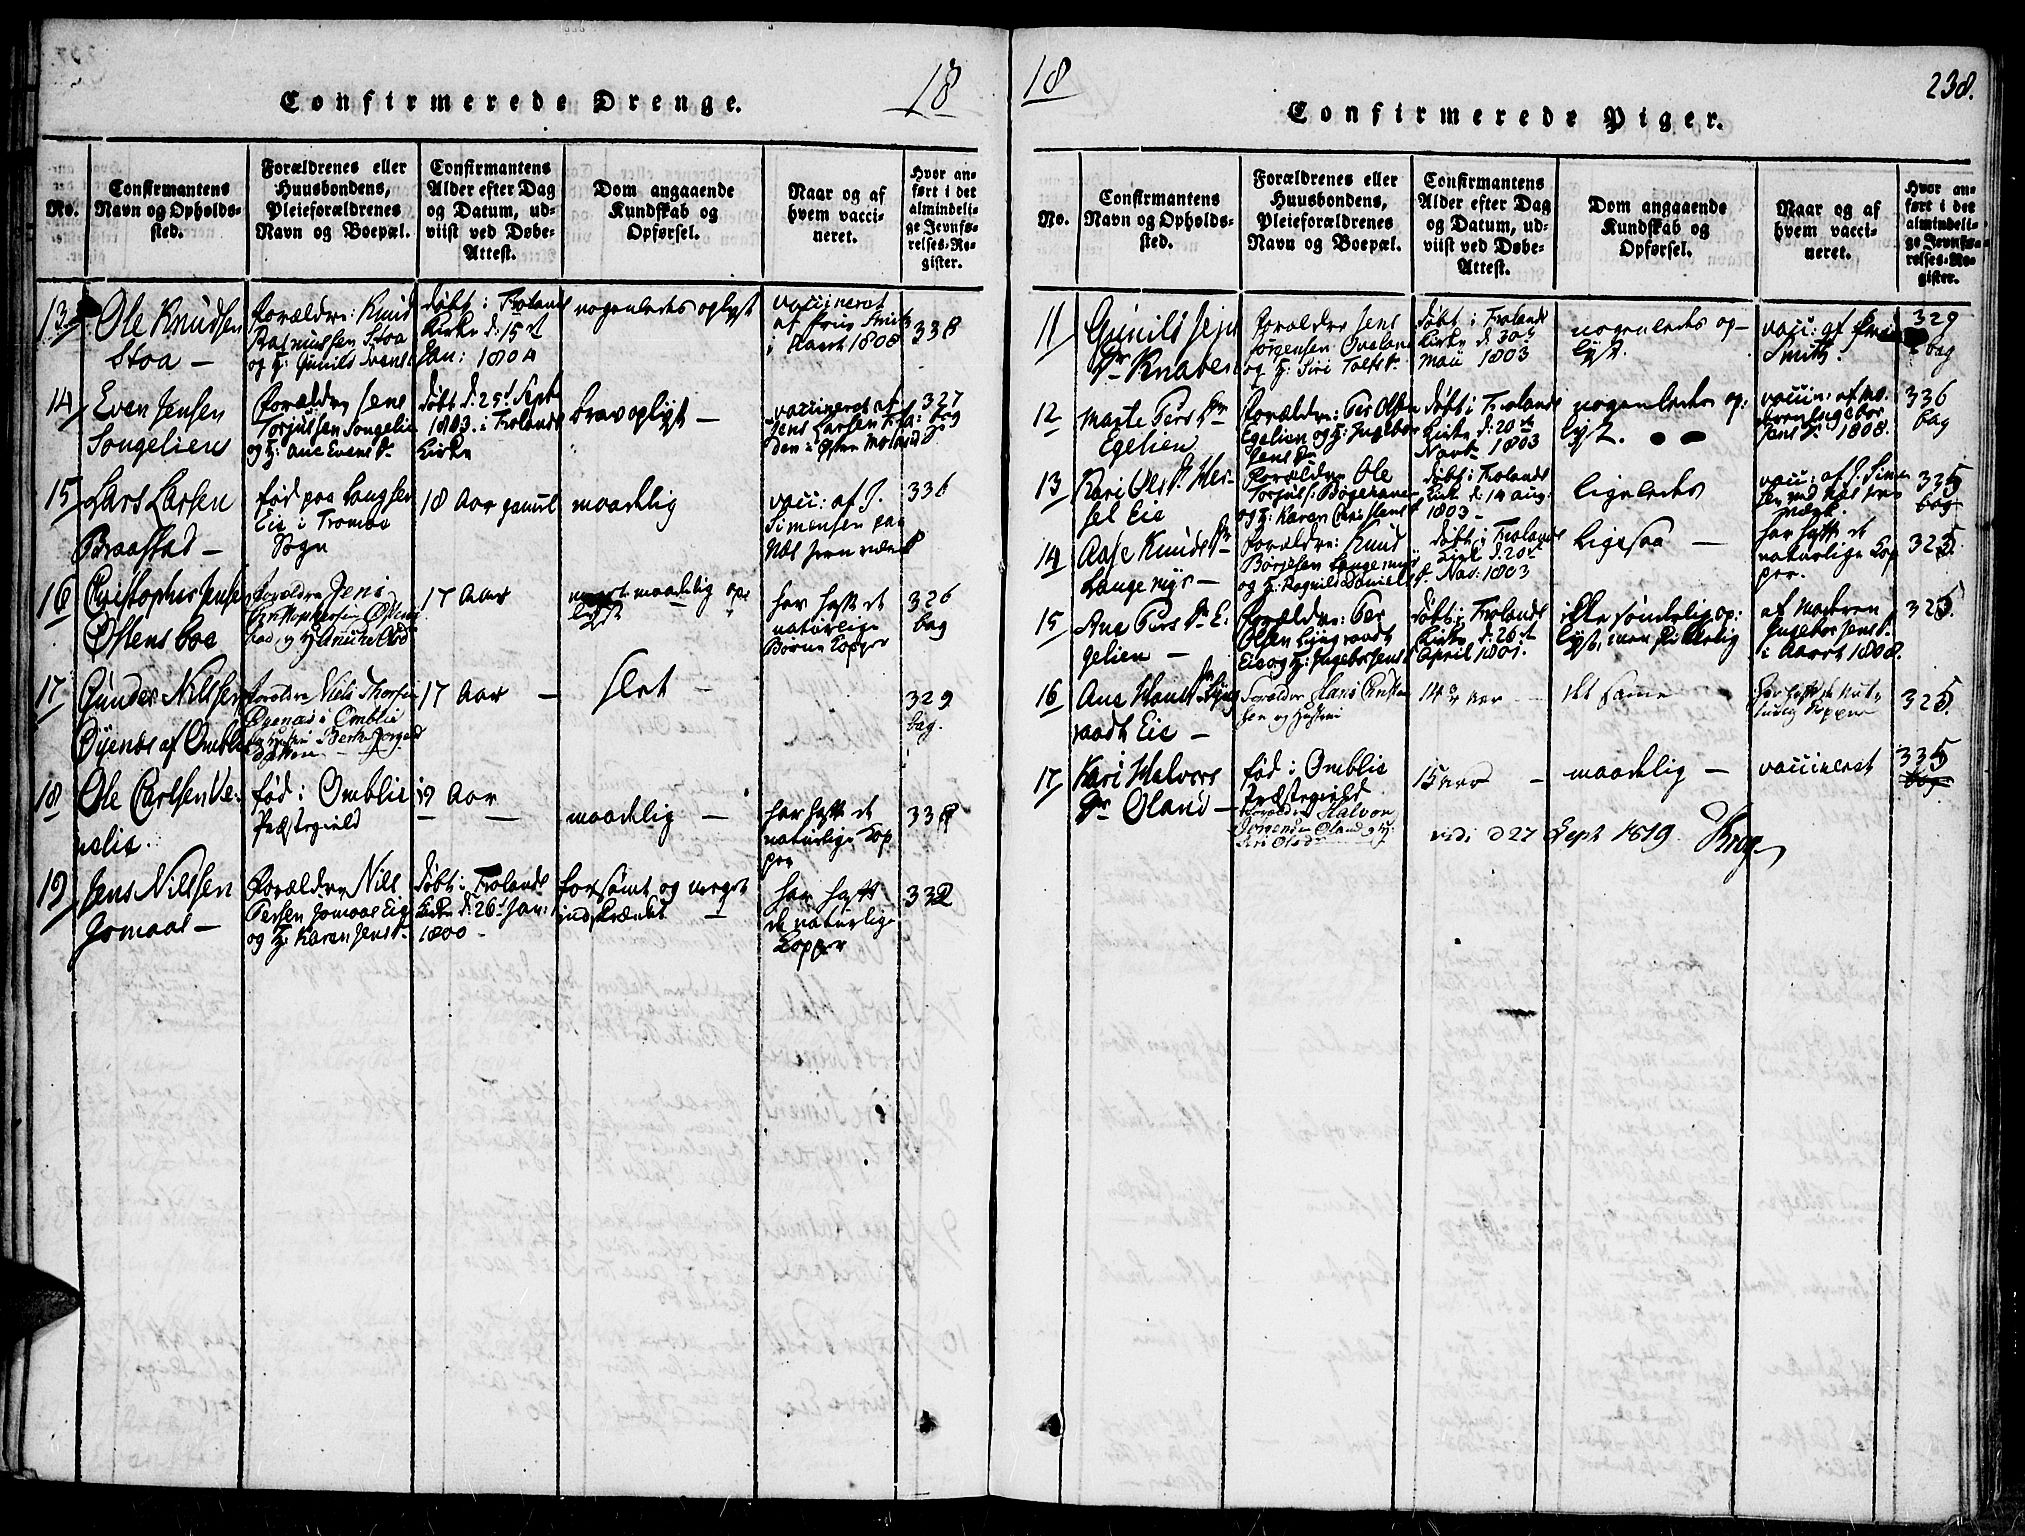 18
Confirmerede Drenge.
No.
Confirmantens
Navn og Opholds-
sted.
Forældrenes eller
Huusbondens,
Pleieforældrenes
Navn og Boepæl.
Confirmantens
Alder efter Dag
og Datum, ud-
viist ved Døbe-
Attest.
Dom angaaende
Kundskab og
Opførsel.
Naar og af
hvem vacci-
neret.
Hvor an-
ført i det
almindeli-
ge Jevnfø-
relses-Re-
gister.
13
Ole Knudsen
Stoa —
Forældre: Knud
Rasmussen Stoa
og H: Gunild Evensd
døbt i Frolands
Kirke d: 15de
Jan: 1804
nogenledes oplyst
vaccineret
af Smith
i Aaret 1808
338
14
Even Jensen
Songeliens
Forældre Jens
Torjussen Songelie
og H: Ane Evens Dr
døbt d: 25de Sept
1803. i Frolands
Kirke
brav oplyst —
vaccineret af
Jens Larsen
den i Østre Moland
327
bag
15
Lars Larsen
Braastad —
født paa Langsev
Eie i Tromøe
Sogn
18 Aar gammel
maadelig
vacc: af J.
Simensen paa
Næs Jernværk
336
16
Christopher Jensen
Østensboe
Forældre Jens
Christophersen Østens
17 Aar
meget maadelig op
lyst
har haft de
naturlige
Børne Kopper
326
bag
17
Gunder Nilssen
Øyenæs af Omblie
Forældre Niels Thorsen
Øyenæs i Omblie
17 Aar —
slet —
329
bag.
18
Ole Carlsen Ve-
nelie.
født i Omblie
Præstegield
19 Aar
maadelig —
har haft de
naturlige Kop
per
338
19
Jens Nilssen
Jomaas —
Forældre Nils
Persen Jomaas Eie
og H: Karen Jens Dr
døbt i Frolands
Kirke d: 26de Jan:
1800 -
forsømt og meget
indskrænket
har haft
de naturlige
Kopper
332
18
238.
Confirmerede Piger.
No.
Confirmantens
Navn og Opholds-
sted.
Forældrenes eller
Huusbondens,
Pleieforældrenes
Navn og Boepæl.
Confirmantens
Alder efter Dag
og Datum, ud-
viist ved Døbe-
Attest.
Dom angaaende
Kundskab og
Opførsel.
Naar og af
hvem vacci-
neret.
Hvor an-
ført i det
almindeli-
ge Jevnfø-
relses-Re-
gister.
11
Gunild Jens
Dr Knaben
Forældre Jens
Jørgensen Oveland
og H: Siri Tolfs Dr
døbt i Frolands
Kirke d: 30de
Maii 1803
nogenledes op-
lyst.
vacc: af
Smith
329
bag
12
Marte Pers Dr
Egelien
Forældre: Per Olsen
Egelien og H: Ingebor
Jens Dr
døbt i Frolands
Kirke d: 20de
Novb. 1803
nogenledes op:
lyst.
vaccin: af Mo
deren Ingebor
Jens D. 1808.
336
bag
13
Kari Oles Dr Mes-
sel Eie
Forældre Ole
Torjuls: Bøgeraaen
og H: Karen Christens D
døbt i Frolands
Kirke d: 14 Aug:
1803 -
ligeledes
vacc: af J. Simen
sen ved Næs Jern
værk.
335
bag
14
Aase Knuds Dr
Langemyr —
Forældre: Knud
Børjesen Langemyr
og H: Ragnild Daniels
D.
døbt i Frolands
Kirk d: 20de
Nov: 1803
ligesaa —
har haft de
naturlige Kop
per.
325.
15
Ane Pers Dr E-
gelien —
Forældre: Per
Olsen Lyngraadt
Eie og H: Ingebor Jens D
døbt i Frolands
Kirke d: 26de
April 1801.
ikke sønderlig op:
lyst, men skikkelig
af Moderen
Ingebor Jens D.
i Aaret 1808.
325.
16
Ane Hans Dr Lyng
raadt Eie —
Forældre Hans Christen
sen og Hustru
14 3/4 Aar —
det samme
har haft de Natu
rlig Kopper
325.
17
Kari Halvors
Dr Øland —
født i Omblie
Præstegield
Forældre Halvor
Jørgensen Øland og H:
Siri Olsd
15 Aar —
maadelig —
vaccineret
335
bag
vidi d 27 Sept 1819. Krog